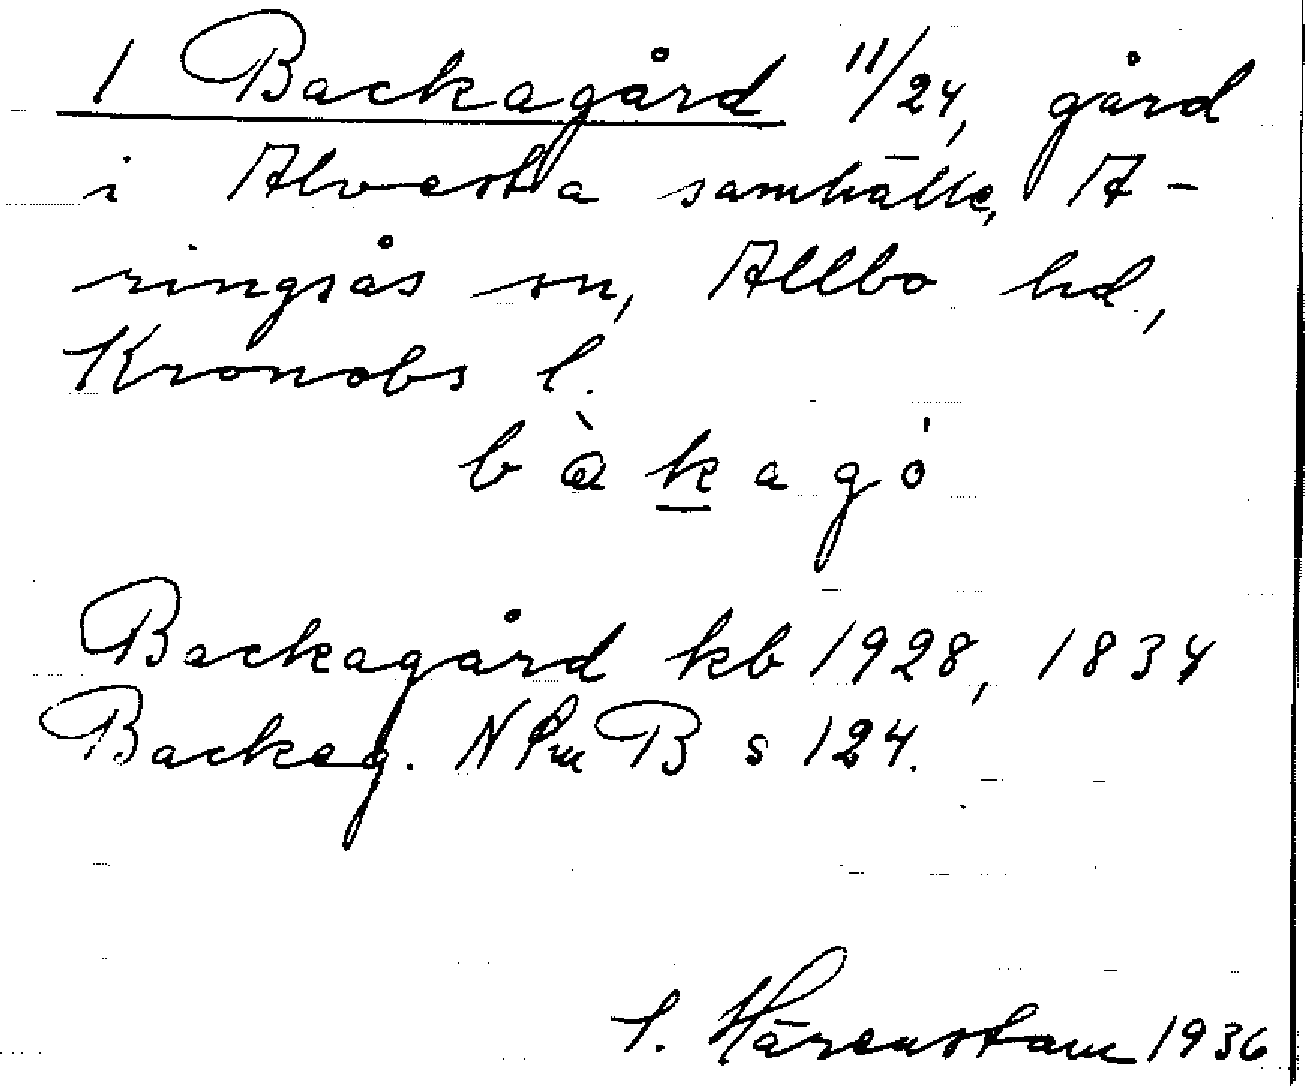 1 Backagård 11/24, gård
i Alvesta samhälle, A-
ringsås sn, Allbo hd,
Kronobs l.
bàkagó
Backagård kb 1928, 1834
Backag. N Sm B s 124.
Härenstam 1936